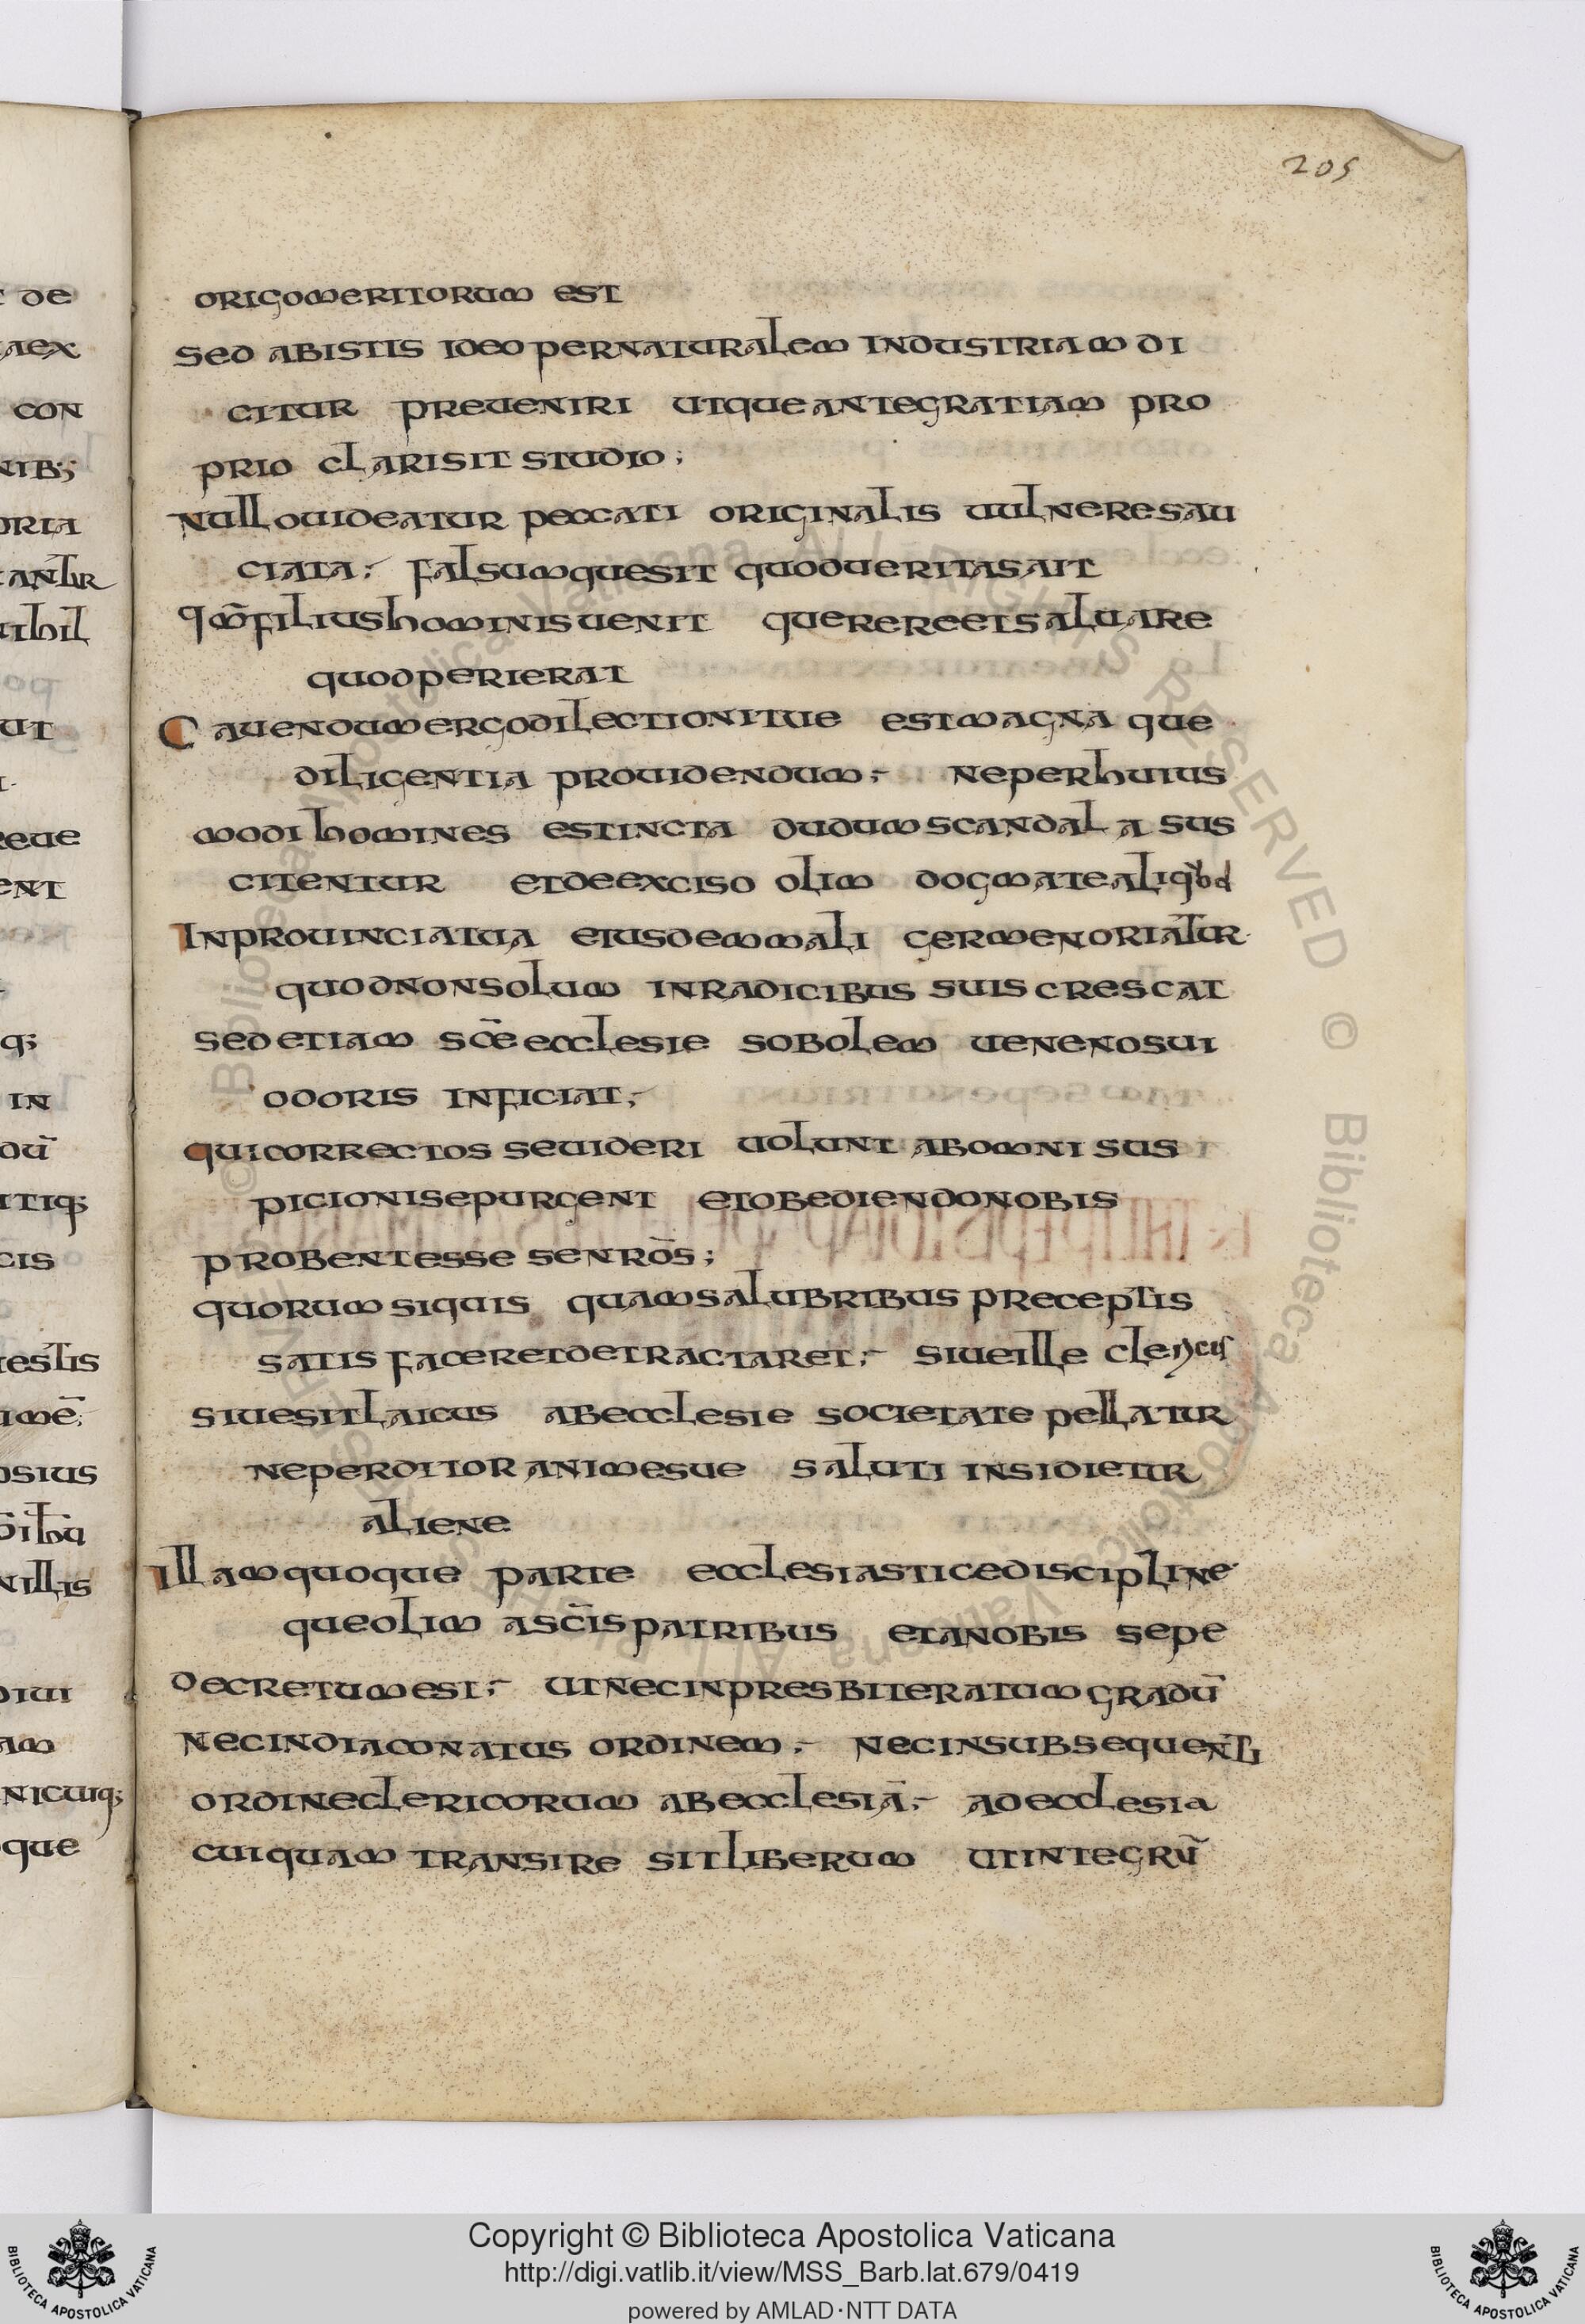 205
origomeritorum est
sed abistis ideo pernaturalem industriam di
citur preueniri utque antegratiam pro
prio clarisit studio;
nullouideatur peccati originalis uulneresau
ciata; falsumquesit quodueritasait
qm̄filiushominisuenit querereetsaluare
quodperierat
Cauendumergodilectionitue estmagna que
diligentia prouidendum; neperhuius
modi homines estincta dudumscandala sus
citentur etdeexciso olim dogmatealiqđ
Inprouinciatua eiusdemmali germenoriatur
quodnonsolum inradicibus suiscrescat
sedetiam sc̄eecclesie sobolem uenenosui
odoris inficiat;
quicorrectos seuideri uolunt abomni sus
picionisepurgent etobediendonobis
probentesse senrōs;
quorumsiquis quamsalubribus preceptis
satis faceretdetractaret; siueille clericus
siuesitlaicus abecclesie societate pellatur
neperditor animesue saluti insidietur
aliene
Illamquoque parte ecclesiasticediscipline
queolim asc̄ispatribus etanobis sepe
decretumest; utnecinpresbiteratumgradū
necindiaconatus ordinem; necinsubsequenti
ordineclericorum abecclesiā; adecclesia
cuiquam transire sitliberum utintegrū
t de
aex
con
nib;
oria
antur
nihil
ut
eue
ent
q;
in
dū
itiq;
cis
estis
imē;
osius
nillis
diui
am
nicuiq;
que
Copyright © Biblioteca Apostolica Vaticana
http://digi.vatlib.it/view/MSS_Barb.lat.679/0419
powered by AMLAD·NTT DATA
BIBLIOTECA APOSTOLICA VATICANA
BIBLIOTECA APOSTOLICA VATICANA